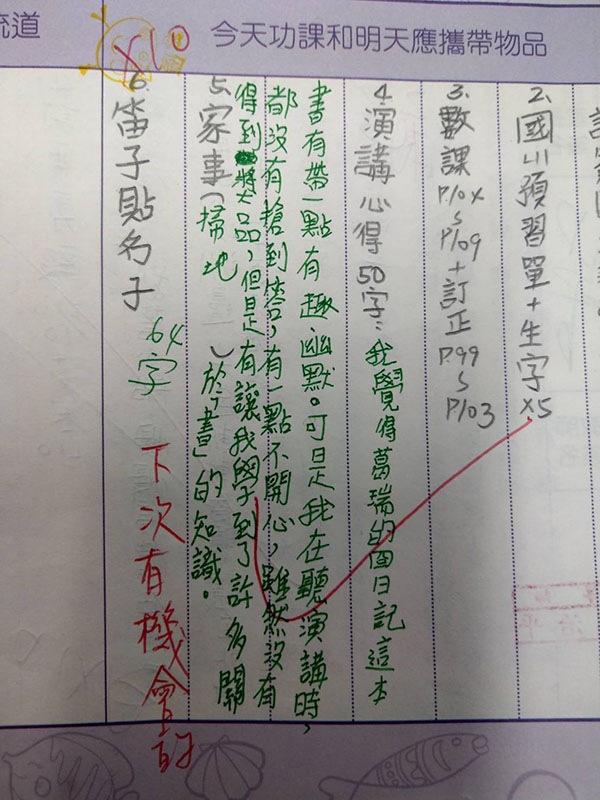 流道
今天功課和明天應攜帶物品
x10
2.國小預習單+生字x5
3.數課P.104~P.109+訂正P.99~P.103
4.演講心得50字:我覺得葛瑞的囧日記這本
書有帶一點有趣幽默。可是我在聽演講時,
都沒有搶到答,有一點不開心,雖然沒有
得到獎品,但是有讓我學到了許多關
5.家事(掃地 )於「書」的知識。
6.笛子貼名子
64字
下次有機會的